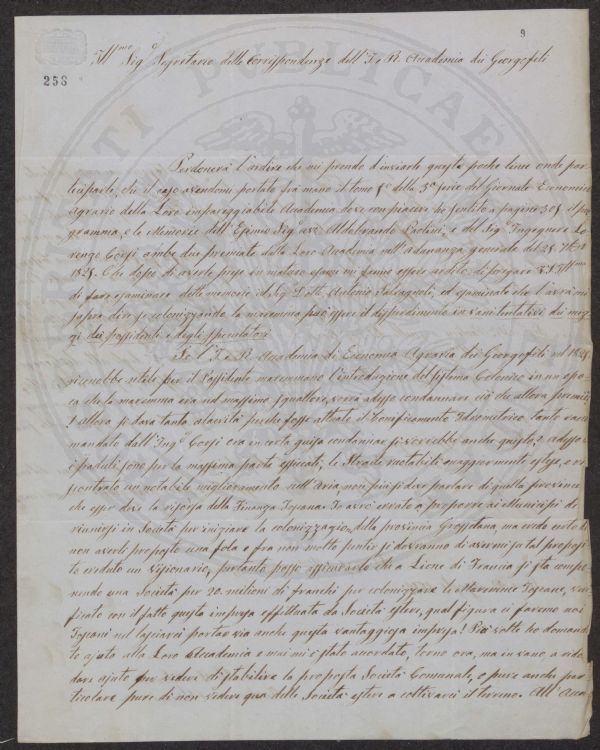 9
Ill.mo Sig.e Segretario delle corrispondenze dell'I. e R. Accademia dei Georgofili
258
Perdonerà l'ardire che mi prendo d'inviarle queste poche linee onde par-
teciparle, che il caso avendomi portato fra mano il tomo 1° della 3a serie del Giornale Economico
Agrario della Loro impareggiabile Accademia dove con piacere ho sentito a pagine 305 il pro-
gramma, e le Memorie dell'Esimio Sig. avv. Aldobrando Paolini, e del Sig. Ingegnere Lo-
renzo Corsi ambe due premiate dalla Loro Accademia nell'adunanza generale del 28 7bre
1828. Che dopo di averle prese in maturo esame mi fanno essere ardito di pregare V.S. Ill.ma
di fare esaminare dette memorie al Sig. Dott. Antonio Salvagnoli, ed esaminate che l'avrà mi
sapra dire se colonizzando la maremma può essere il disperdimento in vani tentativi dei mez-
zi dei possidenti e degli speculatori
Se l'I. e R. Accademia di Economia Agraria dei Georgofili nel 1828
riconobbe utile per il Possidente maremmano l'introduzione del sistema Colonico in un epo-
ca che la maremma era nel massimo squallore, vorrà adesso condannare ciò che allora premiò
? allora si dava tanta alacrità perché fosse attuato il Bonificamento Idrometrico tanto racco-
mandato dall'Ing.e Corsi ora in certa guisa condannar si vorrebbe anche questo? adesso
i paduli sono per la massima parte essiccati, le Strade ruotabili maggiormente estese, e ri-
scontrato un notabile miglioramento nell'Aria non più si deve parlare di quella provincia
che esser deve la risorsa della Finanza Toscana? Io avrò errato a proporre ai Municipi di
riunirsi in Società per iniziare la colonizzazione della provincia Grossetana, ma credo certo di
non averli proposto una fola e fra non molto pentir si dovranno di avermi su tal proposi-
to creduto un visionario, pertanto posso assicurarlo che a Lione di Francia si sta compo-
nendo una Società per 20 milioni di franchi per colonizzare le Maremme Toscane, veri-
ficato con il fatto questa impresa effettuata da Società estere, qual figura ci faremo noi
Toscani nel lasciarci portar via anche questa vantaggiosa impresa! Più volte ho domanda-
to ajuto alla Loro Accademia e mai mi è stato accordato, torno ora, ma in vano, a ridoman-
dare ajuto per vedere di stabilire la proposta Società Comunale, o pure anche par-
ticolare pure di non vedere qua delle Società estere a coltivarci il terreno. All'Acca-